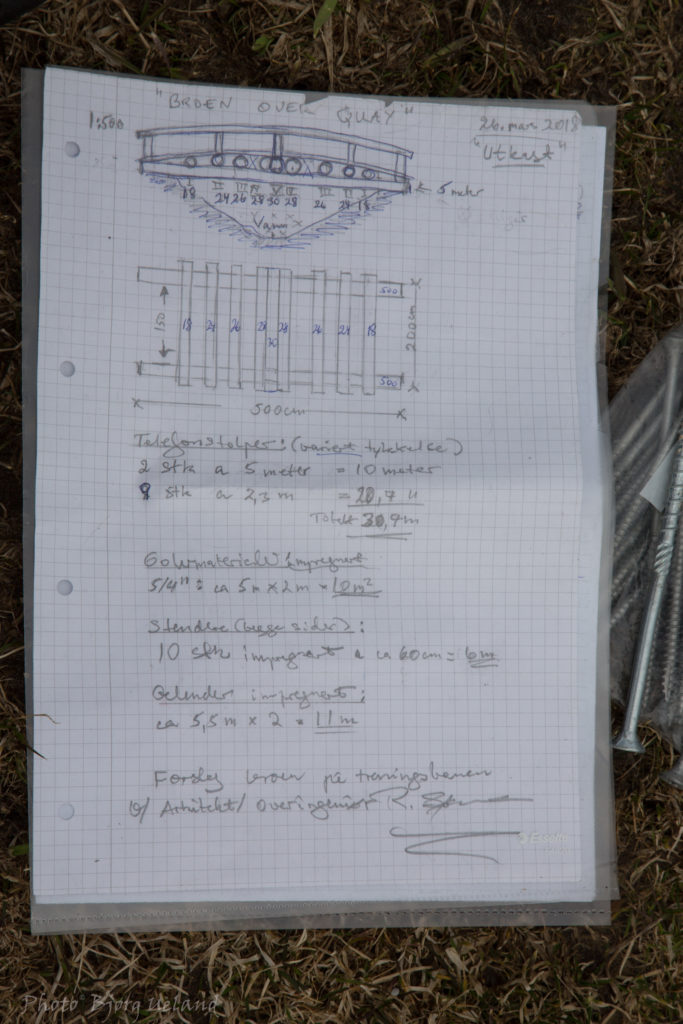 "BROEN OVER QUAY"
1:500
26. mars 2018
"Utkast"
← 5 meter
I II III IV V IV III II I
18 24 26 28 30 28 26 24 18
Vann
150
18 24 26 28 30 28 26 24 18
500
200cm
500
500cm
Telefonstolper: (variert tykkelse)
2 stk a 5 meter = 10 meter
9 stk a 2,3 m = 20,7 "
Totalt 30,7m
Gulvmateriell impregnert
5/4" = ca 5m x 2m = 10m²
Stendere (begge sider):
10 stk impregnert a ca 60cm = 6m
Gelender impregnert:
ca 5,5 m x 2 = 11 m
Forslag broen på treningsbanen
v/ Arkitekt/ Overingeniør R.
Esselte
Photo Bjørg Ueland